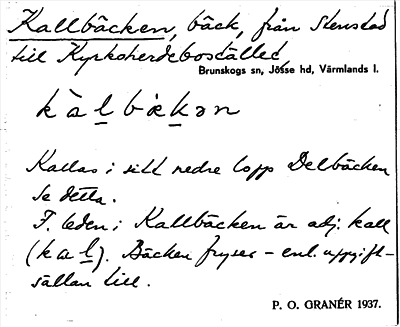 Kallbäcken, bäck, från Stenstad
till Kyrkoherdebostället
Brunskogs sn, Jösse hd, Värmlands l.
kàlbækən
Kallas i sitt nedre lopp Delbäcken
se detta.
F. leden i Kallbäcken är adj. kall
(kal). Bäcken fryser – enl. uppgift –
sällan till.
P. O. GRANÉR 1937.